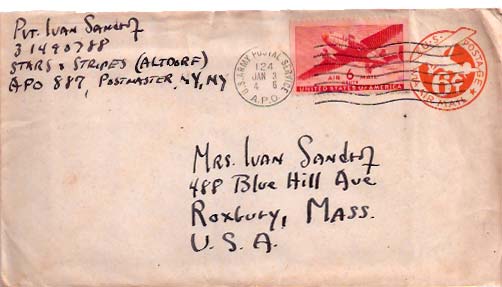 Pvt. Ivan Sandof
31490788
STARS & STRIPES (ALTDORF)
APO 887, POSTMASTER, NY, NY
U.S. ARMY POSTAL SERVICE
124
JAN 3
A.P.O.
AIR 6¢ MAIL
UNITED STATES OF AMERICA
U.S. POSTAGE
VIA AIR MAIL
Mrs. Ivan Sandof
488 Blue Hill Ave
Roxbury, Mass.
U.S.A.